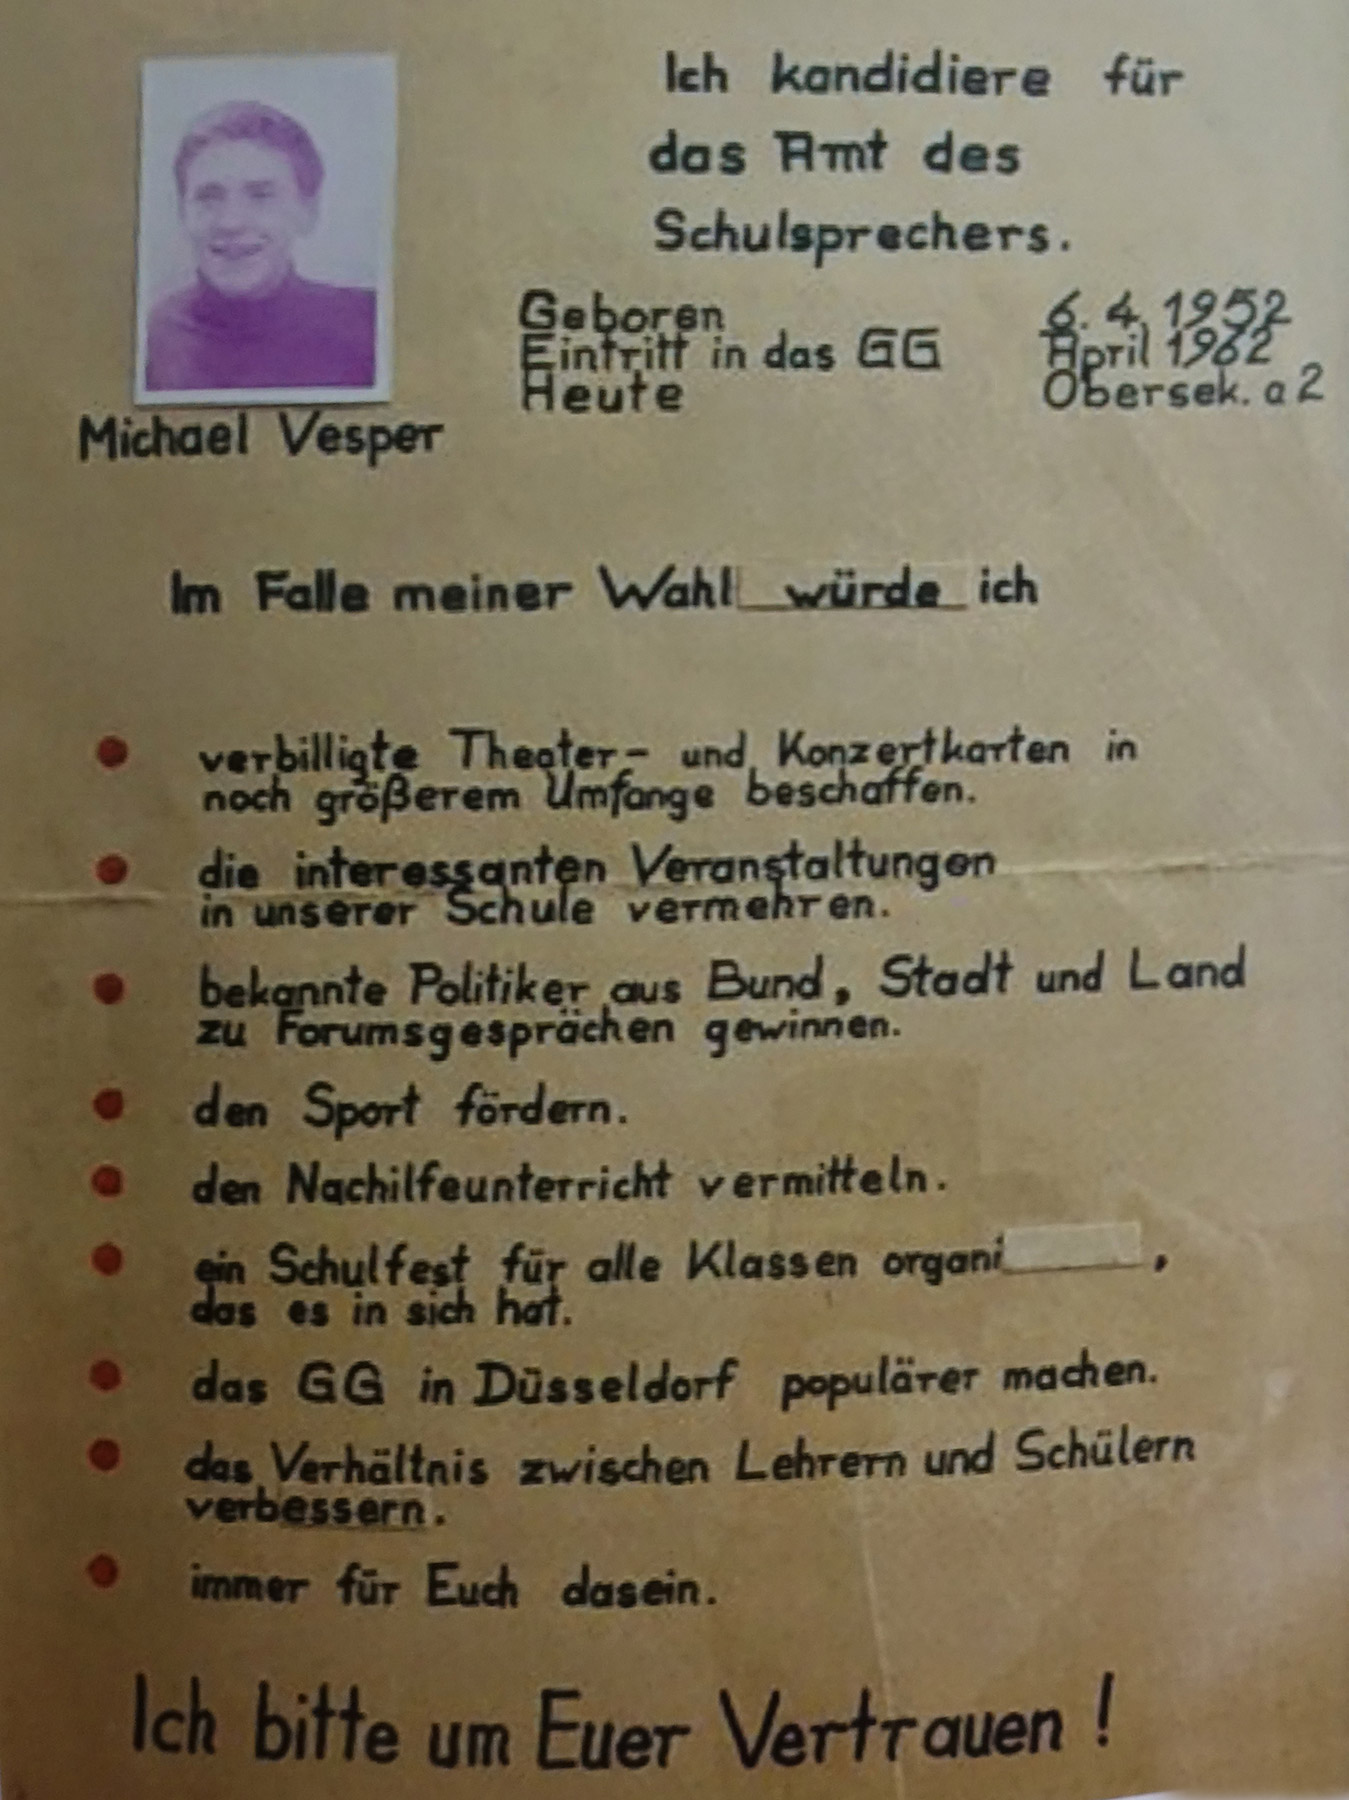 Ich kandidiere für
das Amt des
Schulsprechers.
Geboren 6. 4. 1952
Eintritt in das GG April 1962
Heute Obersek. a 2
Michael Vesper
Im Falle meiner Wahl würde ich
● verbilligte Theater- und Konzertkarten in
noch größerem Umfange beschaffen.
● die interessanten Veranstaltungen
in unserer Schule vermehren.
● bekannte Politiker aus Bund, Stadt und Land
zu Forumsgesprächen gewinnen.
● den Sport fördern.
● den Nachilfeunterricht vermitteln.
● ein Schulfest für alle Klassen organi ,
das es in sich hat.
● das GG in Düsseldorf populärer machen.
● das Verhältnis zwischen Lehrern und Schülern
verbessern.
● immer für Euch dasein.
Ich bitte um Euer Vertrauen !